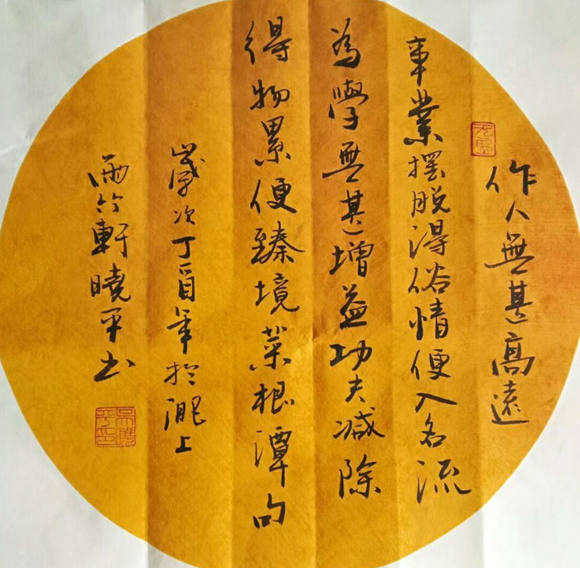 作人無甚高遠
事業擺脫得俗情便入名流
為學無甚增益功夫減除
得物累便臻境菜根潭句
歲次丁酉年於淝上
雨竹軒曉平书